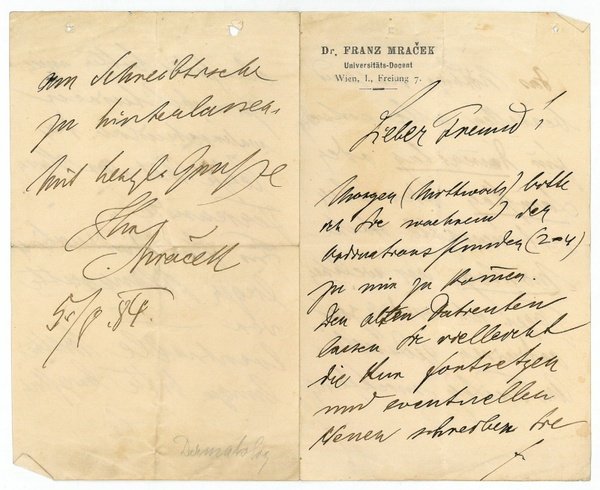 Dr. FRANZ MRAČEK
Universitäts-Docent
Wien, I., Freiung 7.
Lieber Freund!
Morgen (Mittwoch) bitte
ich Sie während der
Ordinationsstunden (2–4)
zu mir zu kom̅en.
Den alten Patienten
lassen Sie vielleicht
die Kur fortsetzen
und eventuellen
neuen schreiben Sie
am Schreibtische
zu hinterlassen.
Mit herzl. Grusse
Ihr
Mraček
84.
Dermatolog